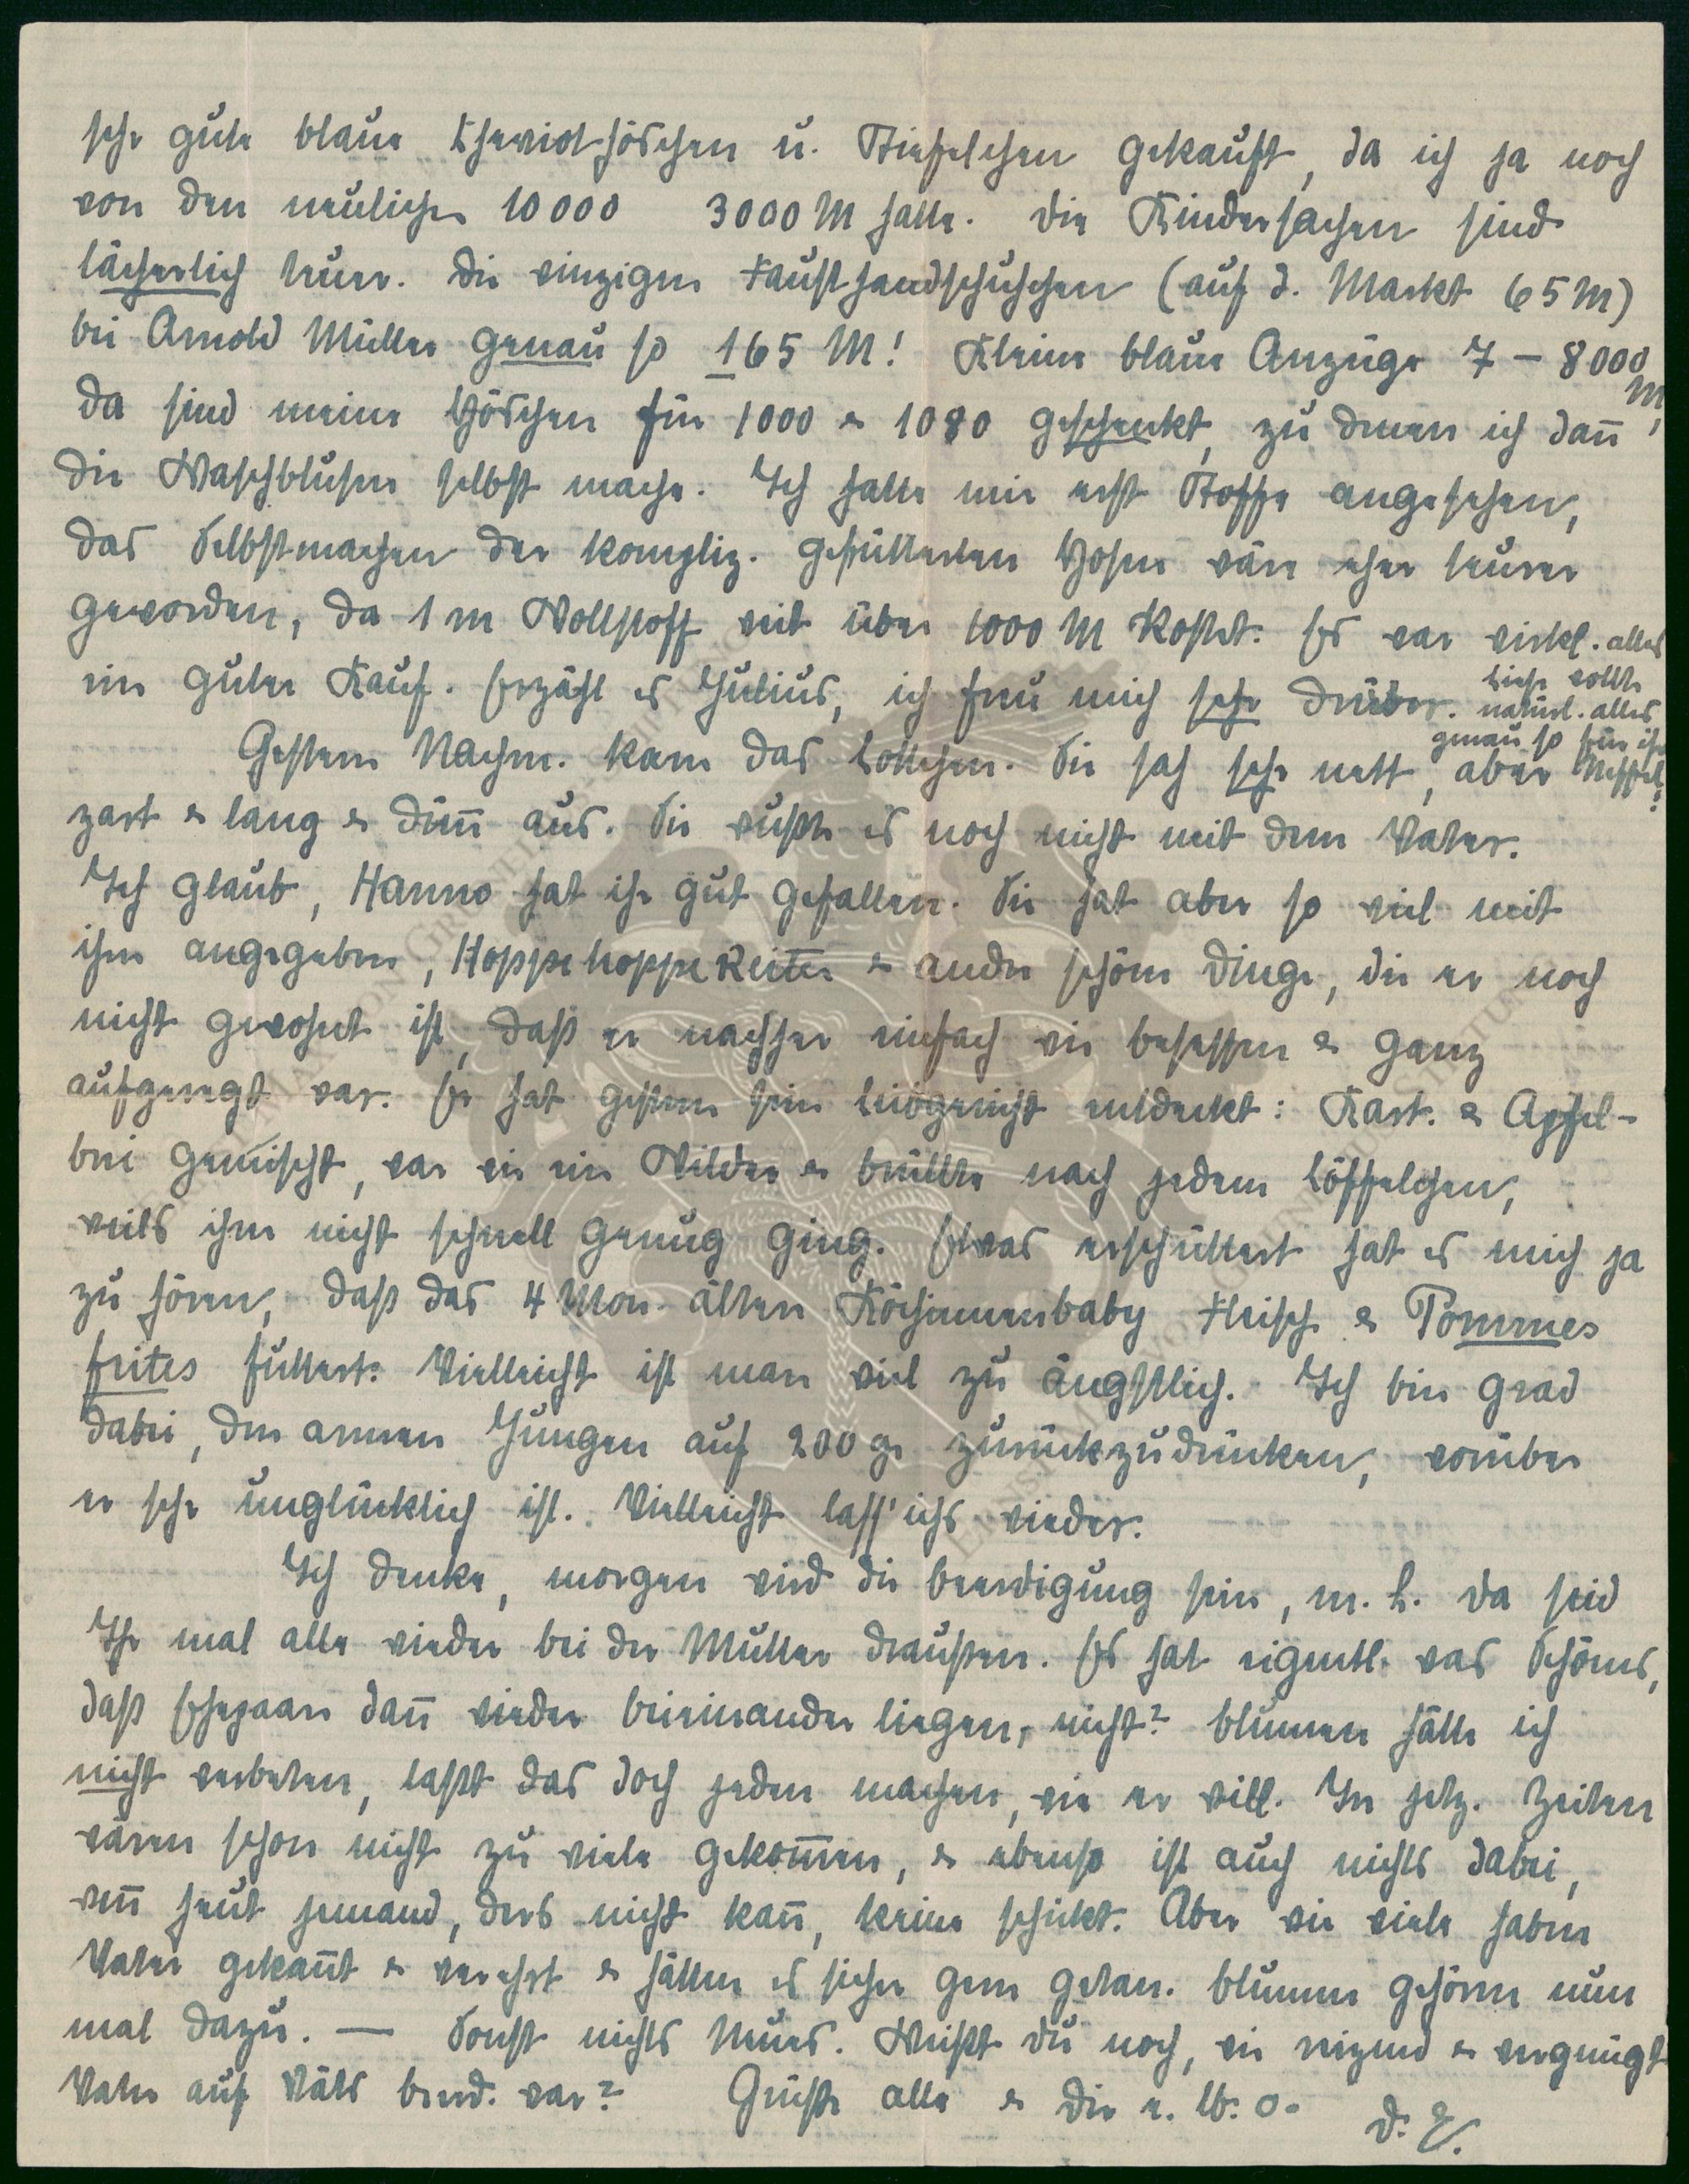 sehr gute blaue Cheviothöschen u. Stiefelchen gekauft, da ich ja noch
von den neulichen 10000 3000 M hatte. Die Kindersachen sind
lächerlich teuer. Die einzigen Fausthandschuhchen (auf d. Markt 65 M)
bei Arnold Müller genau so 165 M! Kleine blaue Anzüge 7 – 8000 M,
da sind meine Höschen für 1000 & 1080 geschenkt, zu denen ich dan̄
die Waschblusen selbst mache. Ich hatte mir erst Stoffe angesehen,
das Selbstmachen der kompliz. gefütterten Hosen wäre eher teurer
geworden, da 1 m Wollstoff weit über 1000 M kostet. Es war wirkl. alles
ein guter Kauf. Erzähl es Julius, ich freu mich sehr drüber.
Liese wollte
natürl. alles
genau so für ihr
Gestern Nachm. kam das Lottchen. Sie sah sehr nett, aber
zart & lang & dün̄ aus. Sie wußte es noch nicht mit dem Vater.
Ich glaub, Hanno hat ihr gut gefallen. Sie hat aber so viel mit
ihm angegeben, Hoppehoppe Reiter & andre schöne Dinge, die er noch
nicht gewohnt ist, daß er nachher einfach wie besessen & ganz
aufgeregt war. Er hat gestern sein Leibgericht entdeckt: Kart. & Apfel-
brei gemischt, war wie ein Wilder & brüllte nach jedem Löffelchen,
weils ihm nicht schnell genug ging. Etwas erschüttert hat es mich ja
zu hören, daß das 4 Mon. ältere Köchinnenbaby Fleisch & Pommes
frites futtert. Vielleicht ist man viel zu ängstlich. Ich bin grad
dabei, den armen Jungen auf 200 gr zurückzudrücken, worüber
er sehr unglücklich ist. Vielleicht lass' ichs wieder.
Ich denke, morgen wird die Beerdigung sein, m. L. Da seid
Ihr mal alle wieder bei der Mutter draußen. Es hat eigentl. was Schönes,
daß Ehepaare dan̄ wieder beieinander liegen, nicht? Blumen hätte ich
nicht verbeten, laßt das doch jeden machen, wie er will. In jetz. Zeiten
wären schon nicht zu viele gekom̄en, & ebenso ist auch nichts dabei,
wen̄ heut jemand, ders nicht kan̄, keine schickt. Aber wie viele haben
Vater gekan̄t & verehrt & hätten es sicher gern getan. Blumen gehören nun
mal dazu. — Sonst nichts Neues. Weißt du noch, wie reizend & vergnügt
Vater auf Wäls beerd. war? Grüße alle & Dir